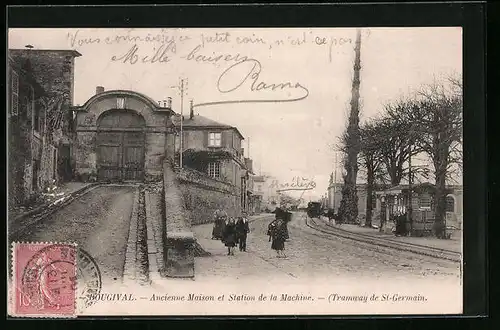 Vous connaissez ce petit coin, n'est ce pas ?
Mille baisers
10
BOUGIVAL. — Ancienne Maison et Station de la Machine. — (Tramway de St-Germain.